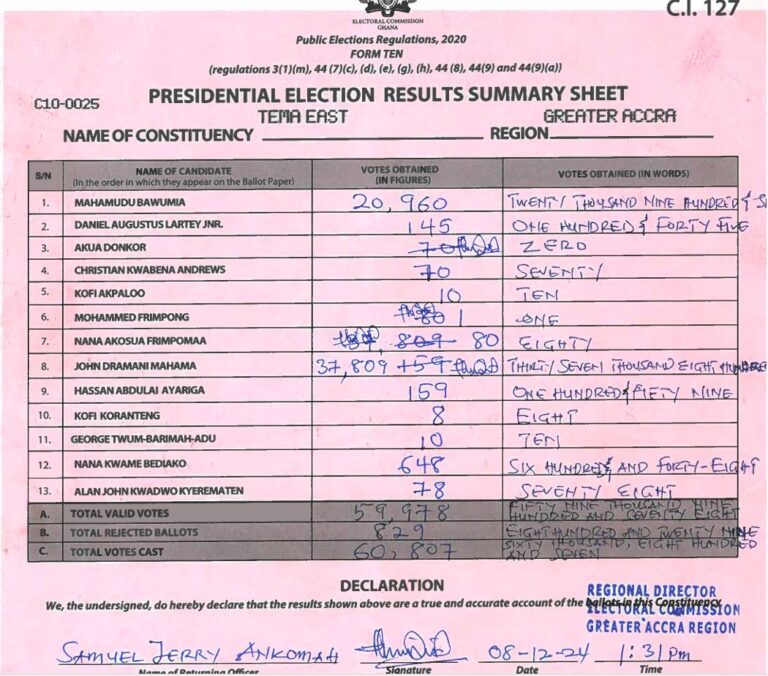 C.I. 127
ELECTORAL COMMISSION
GHANA
Public Elections Regulations, 2020
FORM TEN
(regulations 3(1)(m), 44 (7)(c), (d), (e), (g), (h), 44 (8), 44(9) and 44(9)(a))
C10-0025
PRESIDENTIAL ELECTION RESULTS SUMMARY SHEET
TEMA EAST GREATER ACCRA
NAME OF CONSTITUENCY REGION
S/N NAME OF CANDIDATE (In the order in which they appear on the Ballot Paper) VOTES OBTAINED (IN FIGURES) VOTES OBTAINED (IN WORDS)
1. MAHAMUDU BAWUMIA 20,960 TWENTY THOUSAND NINE HUNDRED & SI
2. DANIEL AUGUSTUS LARTEY JNR. 145 ONE HUNDRED & FORTY FIVE
3. AKUA DONKOR 70 ZERO
4. CHRISTIAN KWABENA ANDREWS 70 SEVENTY
5. KOFI AKPALOO 10 TEN
6. MOHAMMED FRIMPONG 80 1 ONE
7. NANA AKOSUA FRIMPOMAA 37,809 80 EIGHTY
8. JOHN DRAMANI MAHAMA 37,809 159 THIRTY SEVEN THOUSAND EIGHT HUNDRE
9. HASSAN ABDULAI AYARIGA 159 ONE HUNDRED & FIFTY NINE
10. KOFI KORANTENG 8 EIGHT
11. GEORGE TWUM-BARIMAH-ADU 10 TEN
12. NANA KWAME BEDIAKO 648 SIX HUNDRED & AND FORTY-EIGHT
13. ALAN JOHN KWADWO KYEREMATEN 78 SEVENTY EIGHT
A. TOTAL VALID VOTES 59,978 FIFTY NINE THOUSAND NINE HUNDRED AND SEVENTY EIGHT
B. TOTAL REJECTED BALLOTS 829 EIGHT HUNDRED AND TWENTY NINE
C. TOTAL VOTES CAST 60,807 SIXTY THOUSAND, EIGHT HUNDRED AND SEVEN
DECLARATION
We, the undersigned, do hereby declare that the results shown above are a true and accurate account of the ballots in this Constituency.
REGIONAL DIRECTOR
ELECTORAL COMMISSION
GREATER ACCRA REGION
SAMUEL JERRY ANKOMAH 08-12-24 1:31pm
Name of Returning Officer Signature Date Time